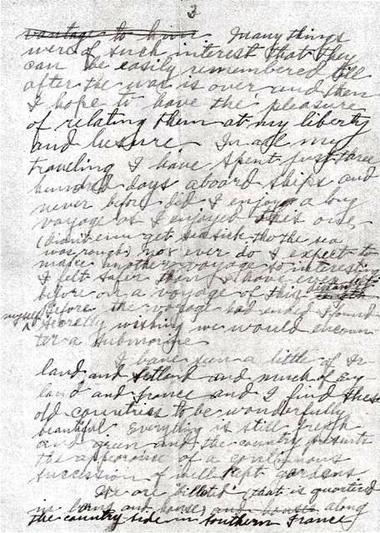 3
vantage to him. Many things
were of such interest that they
can be easily remembered till
after the war is over and then
I hope to have the pleasure
of relating them at my liberty
and leisure. In all my
traveling I have spent just three
hundred days aboard ships and
never before did I enjoy a long
voyage as I enjoyed this one
(didn't even get seasick tho the sea
was rough) nor ever do I expect to
make another voyage so interesting
I felt safer than I have ever
before on a voyage of this distance
Before the voyage had ended I found
myself secretly wishing we would encoun-
ter a submarine
I have seen a little of Ire-
land and Scotland and much of Eng
land and France and I find these
old countries to be wonderfully
beautiful Everything is still fresh
and green and the country presents
the appearance of a continuous
succession of well kept gardens
We are billeted (that is quartered
in barns and houses) and along
the country side in Southern France